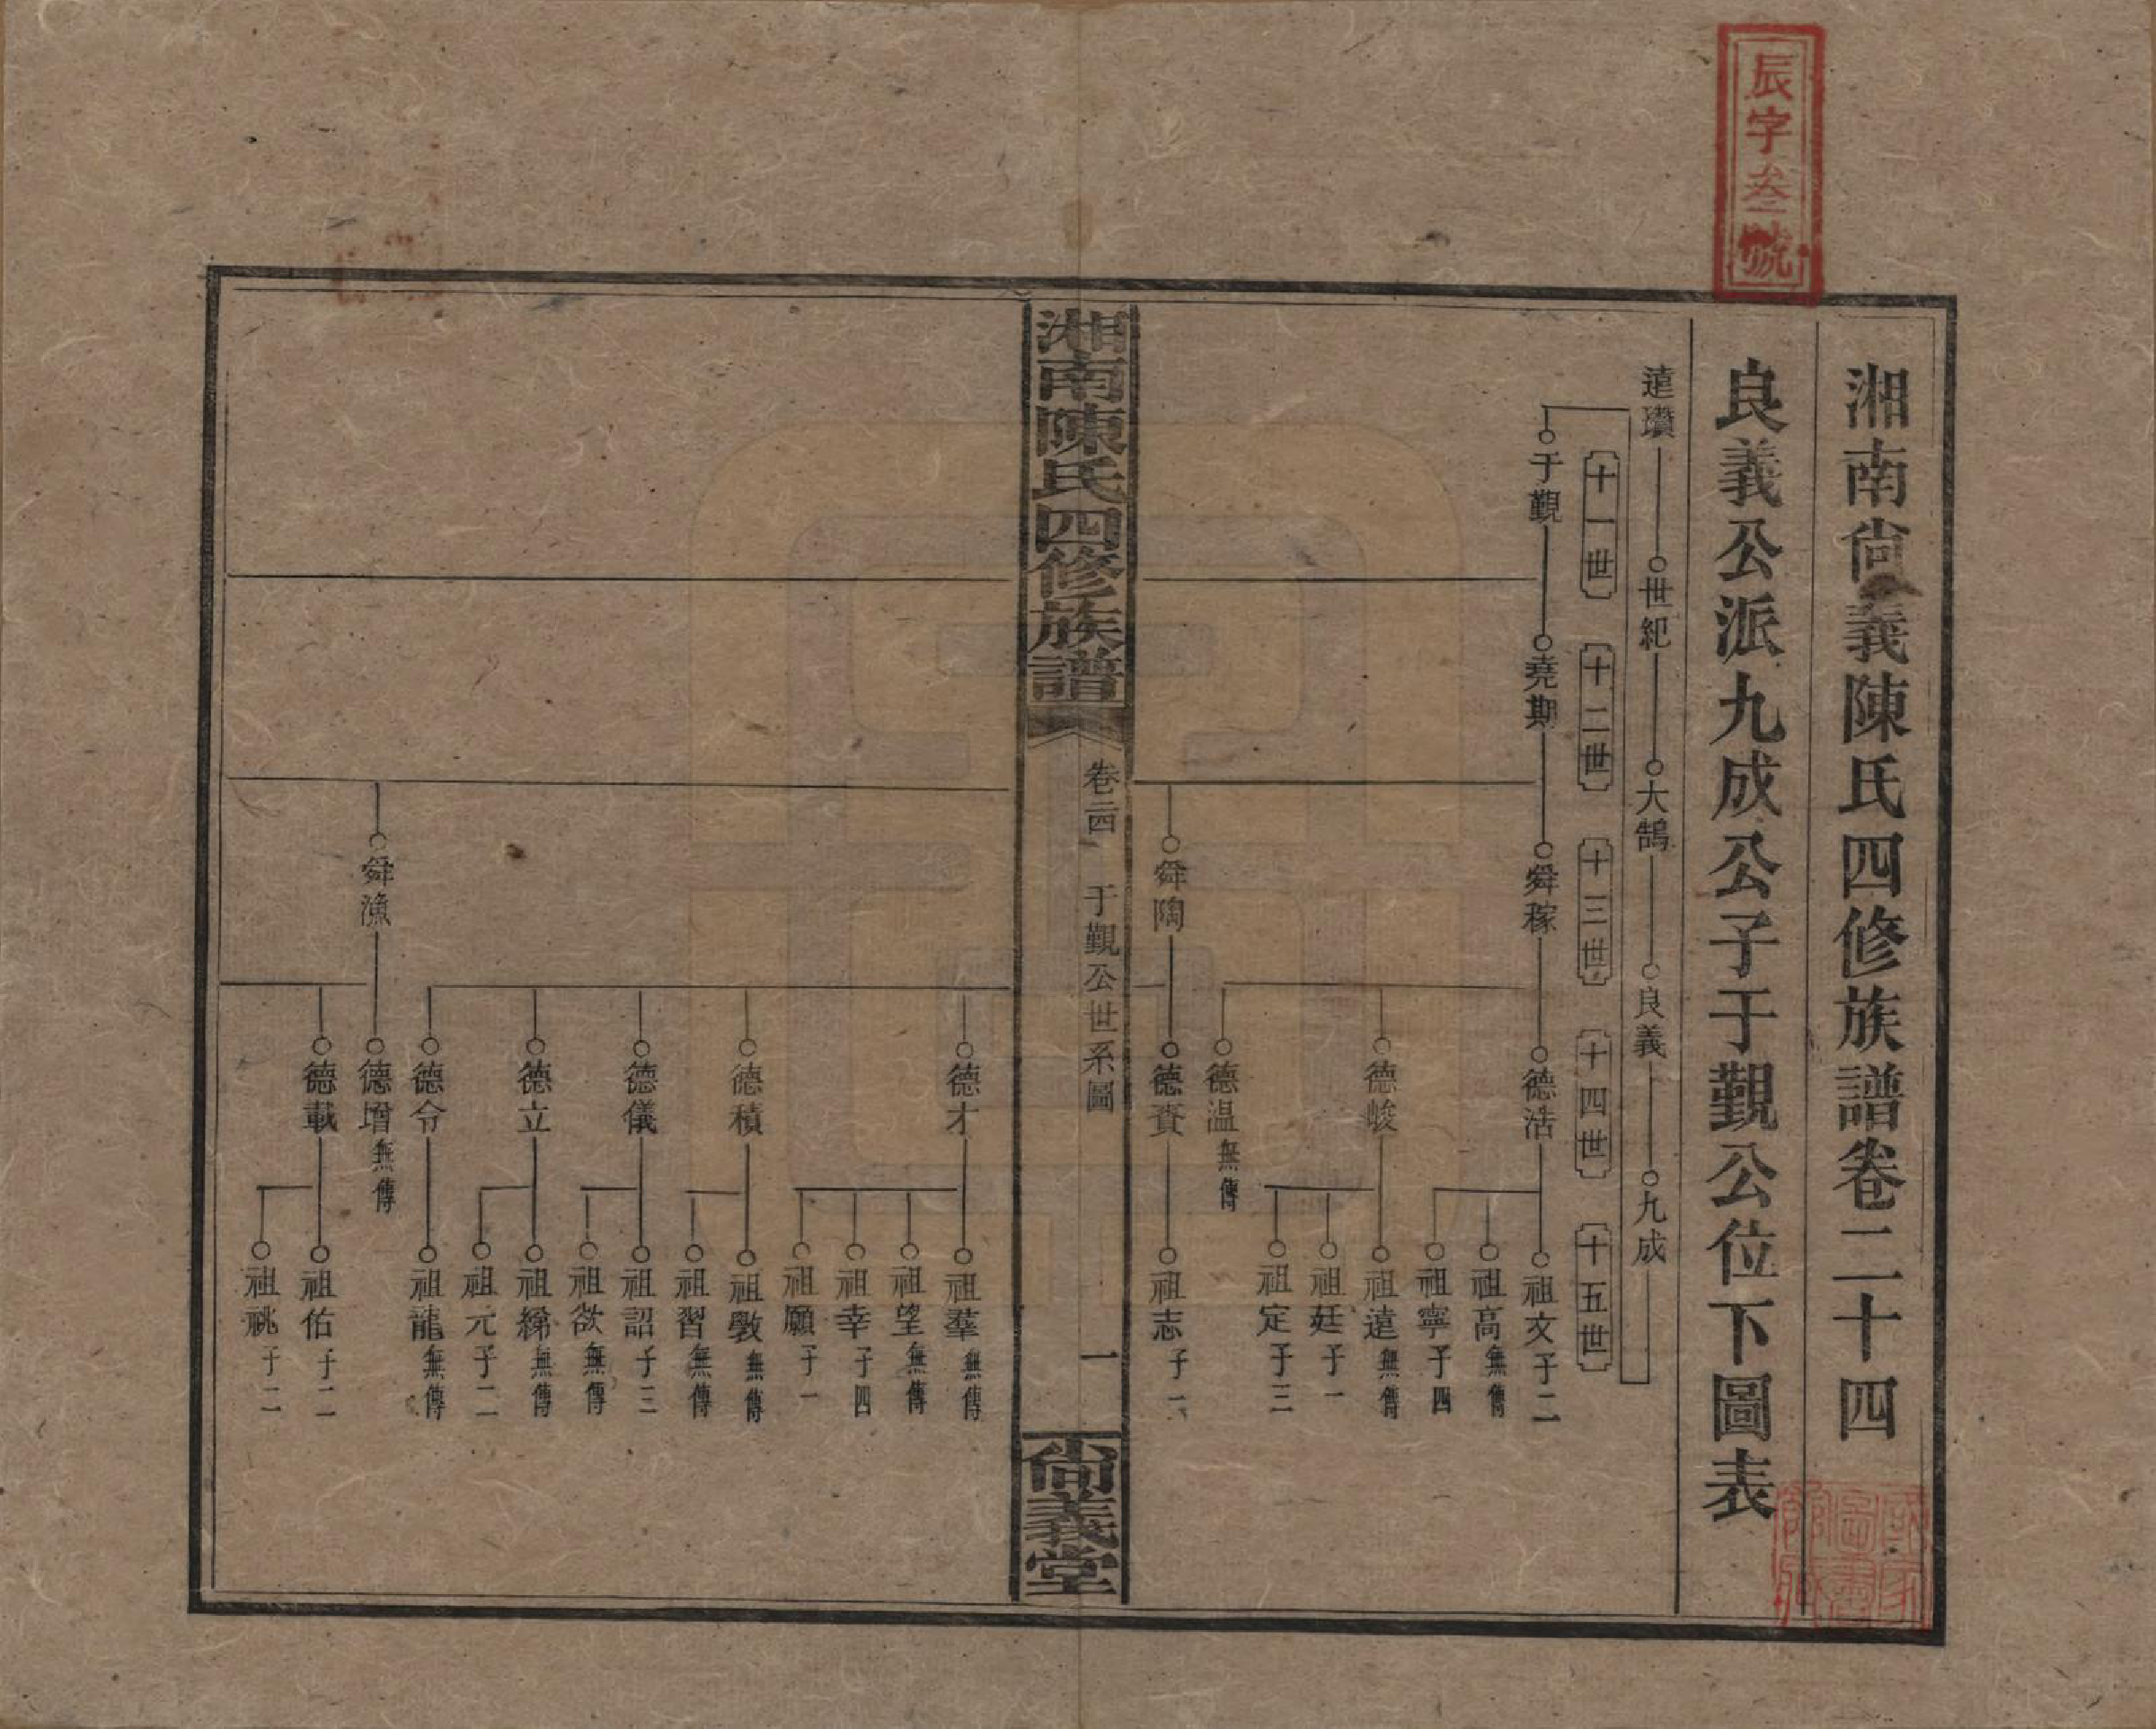 辰字叁號
湘南尙義陳氏四修族譜卷二十四
良義公派九成公子于覲公位下圖表
遠瓚 世紀 大鵠 良義 九成
十一世 十二世 十三世 十四世 十五世
于覲 堯期 舜稼 德活 祖文 子二
祖高 無傳
祖寧 子四
德峻 祖遠 無傳
祖廷 子一
祖定 子三
德温 無傳
舜陶 德資 祖志 子一
湘南陳氏四修族譜 卷二四 于覲公世系圖 一 尙義堂
德才 祖羣 無傳
祖望 無傳
祖幸 子四
祖願 子一
德積 祖斆 無傳
祖習 無傳
德儀 祖詔 子三
祖欲 無傳
德立 祖綈 無傳
祖元 子二
德令 祖龍 無傳
舜漁 德增 無傳
德載 祖佑 子二
祖祧 子二